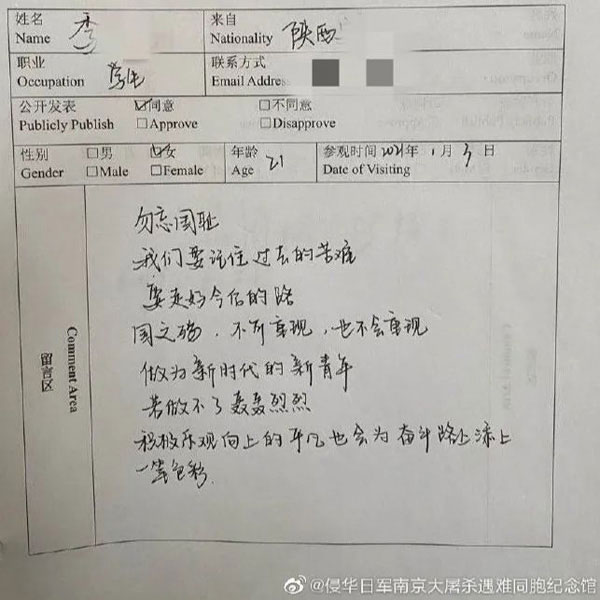 姓名 李 来自 陕西
Name Nationality
职业 学生 联系方式
Occupation Email Addre
公开发表 ☑同意 □不同意
Publicly Publish □Approve □Disapprove
性别 □男 ☑女 年龄 21 参观时间 2021年 1月 3日
Gender □Male □Female Age Date of Visiting
留言区
Comment Area
勿忘国耻
我们要记住过去的苦难
要走好今后的路
国之殇,不可重现,也不会重现
做为新时代的新青年
若做不了轰轰烈烈
积极乐观向上的平凡也会为奋斗路上添上
一笔色彩
@侵华日军南京大屠杀遇难同胞纪念馆